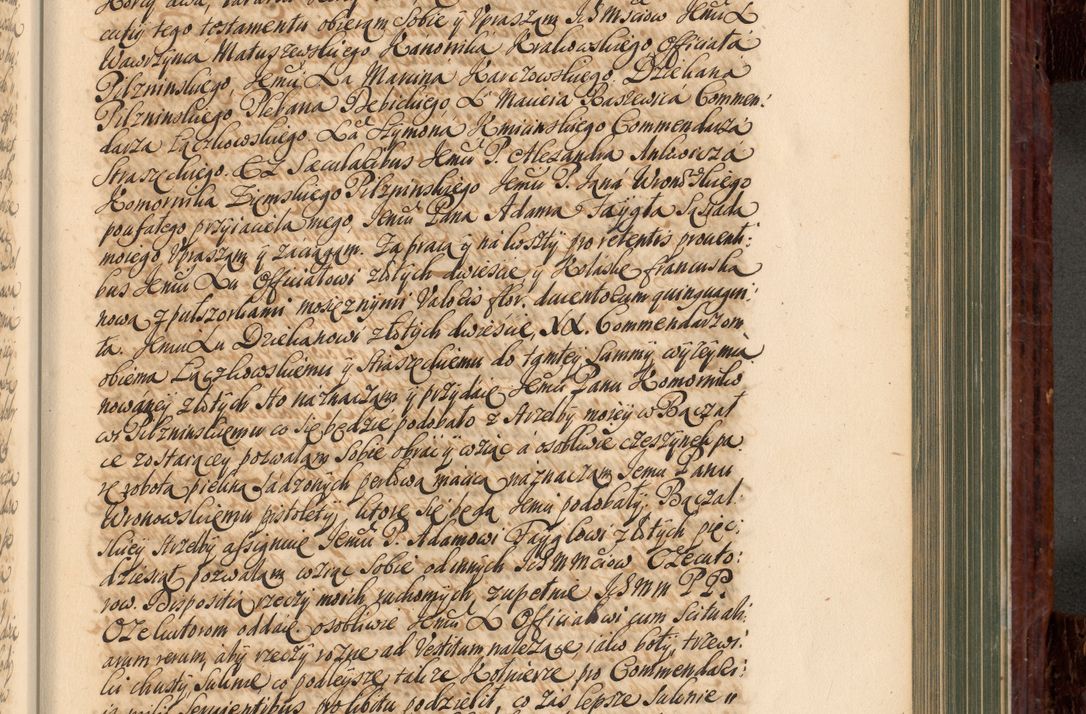 cutij tego testamentu obieram Sobie ÿ Vpraszam JchMsciow Jemci X
Wawrzynca Matuszewskiego Kanonika Krakowskiego Officiała
Pilzninskiego Jemci Xa Marcina Karczowskiego Dziekana
Pilzninskiego Plebana Dębickiego X Macieia Raszewica Commen:
darza Łączkowskiego Xa Szymona Kmicinskiego Commendarza
Straszęckiego. Ex Sæcularibus Jemci P. Alexandra Antowicza
Komornika Ziemskiego Pilzninskiego Jemci P. Jana Wronowskiego
poufałego przyiaciela mego, Jemci Pana Adama Faygla Sąsiada
moiego Vpraszam ÿ zaciągam. Za pracą ÿ na koszty pro retentis proventi:
bus Jemci Xu Officiałowi złotych dwiescie ÿ Kolaskę francuską
nową z pułszorkami mosięznymi Valoris flor. ducentorum quinquagin:
ta. Jemci Xu Dziekanowi złotych dwiescie, XX. Commendarzom
obiema Łączkowskiemu ÿ Straszęckiemu do tamtey Summy wyżey mia
nowaney złotych sto naznaczam ÿ przydaię Jemci Panu Komorniko
wi Pilzninskiemu co się będzie podobało z strzelby moiey w Bączał
ce zostaiącey pozwalam Sobie obrac ÿ wziąc a osobliwie czeszynek pa
rę robotą piękną sadzonych perłową macicą naznaczam Jemci Panu
Wronowskiemu pistolety, ktore się będą Jemci podobały, Bączal:
skiey strzelby assignuię Jemci P. Adamowi Fayglowi złotych pięc:
dziesiąt pozwalam wziąc Sobie od innych JchMMciow Exœcuto:
row. Dispositią rzeczy moich ruchomych zupełnie JchMM PP.
Exekutorom oddaię osobliwie Jemci X Officiałowi cum Scituali:
arum rerum, aby rzeczy rozne ad Vestitum nalezące iako boty, trzewi
ki chusty, suknie, co podleysze, takze Kołnierze pro Commendari: